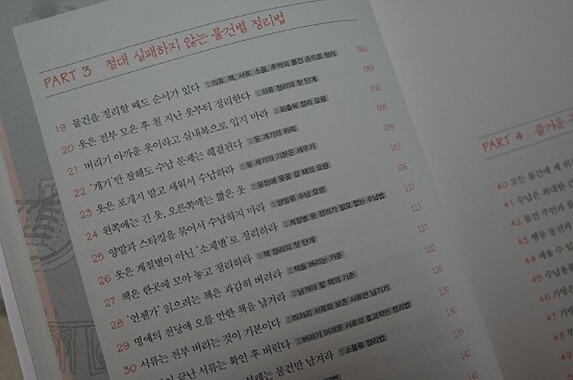 PART 3 절대 실패하지 않는 물건별 정리법
19 물건을 정리할 때도 순서가 있다 의류, 책, 서류, 소품, 추억의 물건 순으로 정리 088
20 옷은 전부 모은 후 철 지난 옷부터 정리한다 의류 정리의 첫 단계 089
21 버리기 아까운 옷이라고 실내복으로 입지 마라 외출복 정리 요령 092
22 '개기'만 잘해도 수납 문제는 해결된다 옷 개기의 위력 096
23 옷은 포개지 말고 세워서 수납하라 옷 개기의 기본은 세우기 099
24 왼쪽에는 긴 옷, 오른쪽에는 짧은 옷 옷장에 옷을 걸 때의 요령 103
25 양말과 스타킹을 묶어서 수납하지 마라 양말류 수납 요령 107
26 옷은 계절별이 아닌 '소재별'로 정리하라 계절별 옷 정리가 필요 없는 수납법 110
27 책은 한곳에 모아 놓고 정리하라 책 정리의 첫 단계 113
28 '언젠가' 읽으려는 책은 과감히 버려라 책을 버리는 기준 117
29 명예의 전당에 오를 만한 책을 남겨라 남겨야 할 책의 기준 122
30 서류는 전부 버리는 것이 기본이다 126
끝난 서류는 확인 후 버린다 버리기 어려운 서류의 효과적인 정리법 130
물건만 남겨라 소품류 정리법
PART 4 즐거운
40 모든 물건에
41 수납은 최대한 간
42
43 행동 동선과
44 세울 수 있
45 수납용품
46 가방은
47 가방
48
49